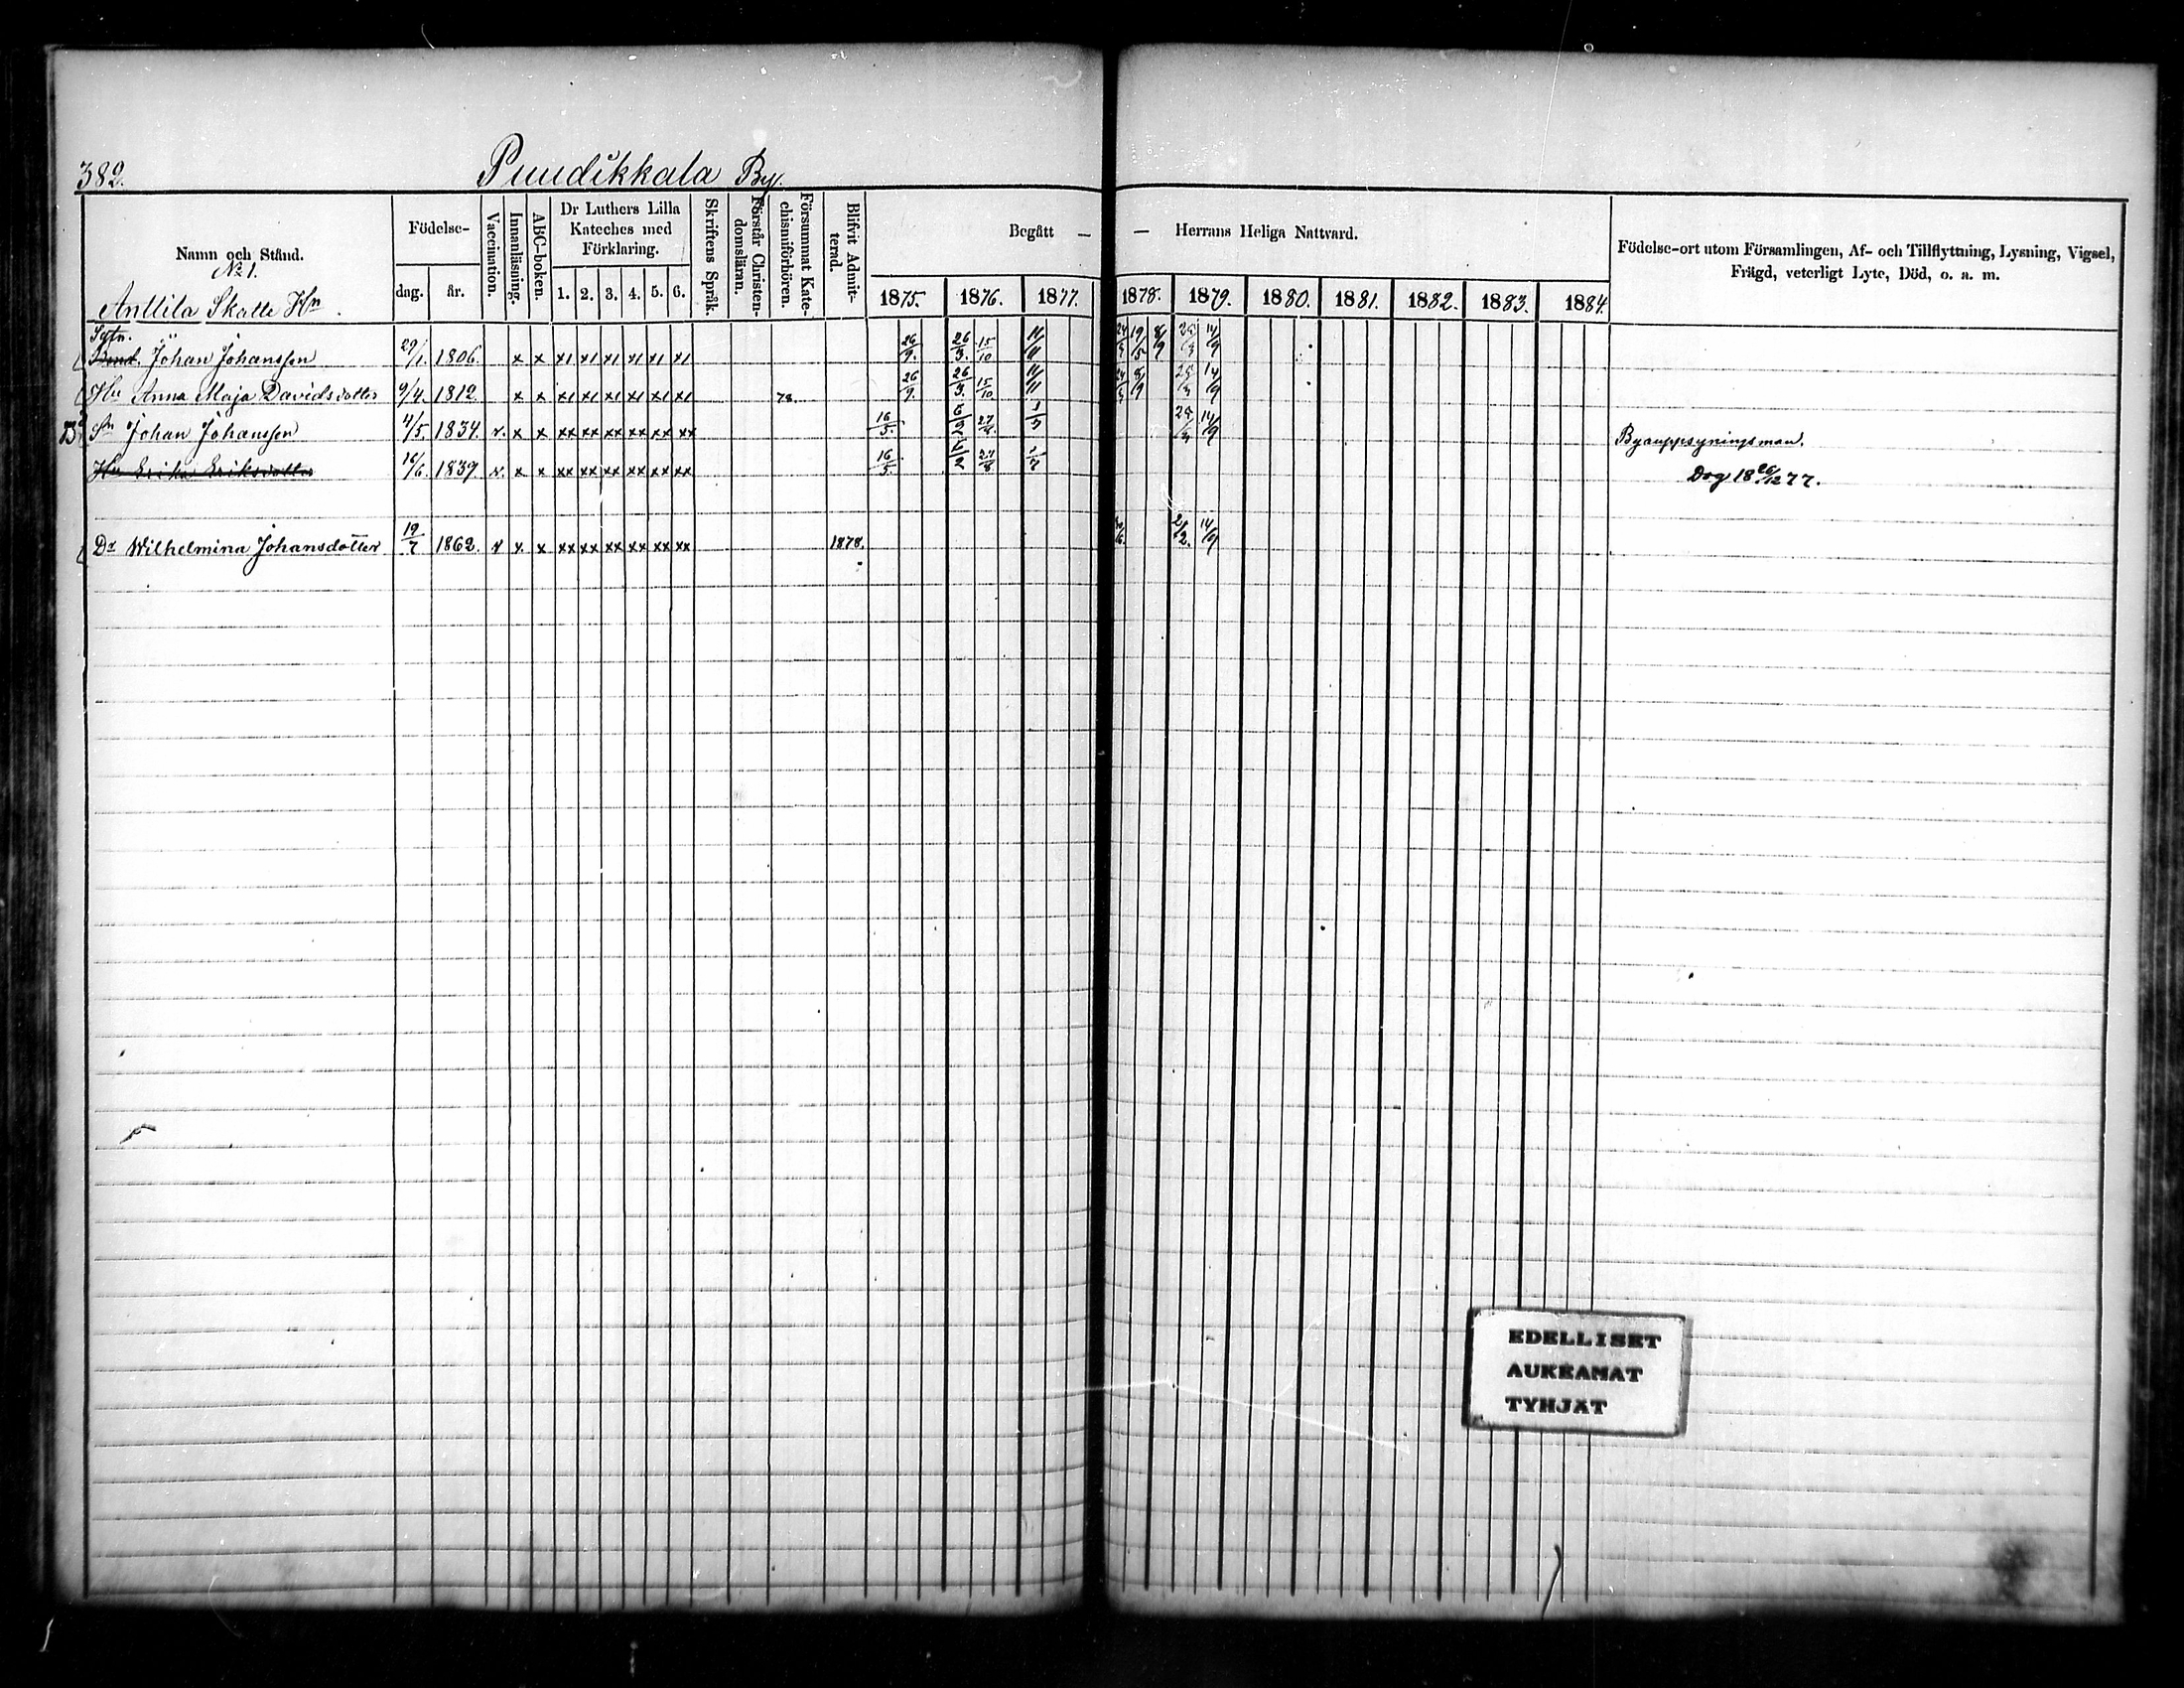 382. Puudikkala By.
Namn och Stånd.
No 1.
Anttila Skatte Hn.
Födelse-
dag. år.
Vaccination.
Innanläsning.
ABC-boken.
Dr Luthers Lilla Kateches med Förklaring.
1. 2. 3. 4. 5. 6.
Skriftens Språk.
Förstår Christendomsläran.
Försummat Katechismiförhören.
Blifvit Admitterad.
Begått — — Herrans Heliga Nattvard.
1875. 1876. 1877. 1878. 1879. 1880. 1881. 1882. 1883. 1884.
Födelse-ort utom Församlingen, Af- och Tillflyttning, Lysning, Vigsel,
Frägd, veterligt Lyte, Död, o. a. m.
Sytn.
Bond. Johan Johansson 29/1. 1806. x x x1 x1 x1 x1 x1 x1 26/9. 26/3. 15/10 11/11 24/3 19/5 8/9 25/3 14/9
Hu Anna Maja Davidsdotter 9/4. 1812. x x x1 x1 x1 x1 x1 x1 78. 26/9. 26/3. 15/10 11/11 24/3 8/9 25/3 14/9
Sn Johan Johansson 11/5. 1834. v. x x xx xx xx xx xx xx 16/5. 14/9 Byauppsyningsman.
Hu Erika Eriksdotter 16/6. 1839. v. x x xx xx xx xx xx xx 16/5. Dog 18 26/12 77.
Dr Wilhelmina Johansdotter 19/7 1862. v v. x xx xx xx xx xx xx 1878. 2/2. 14/9
EDELLISET
AUKEAMAT
TYHJÄT